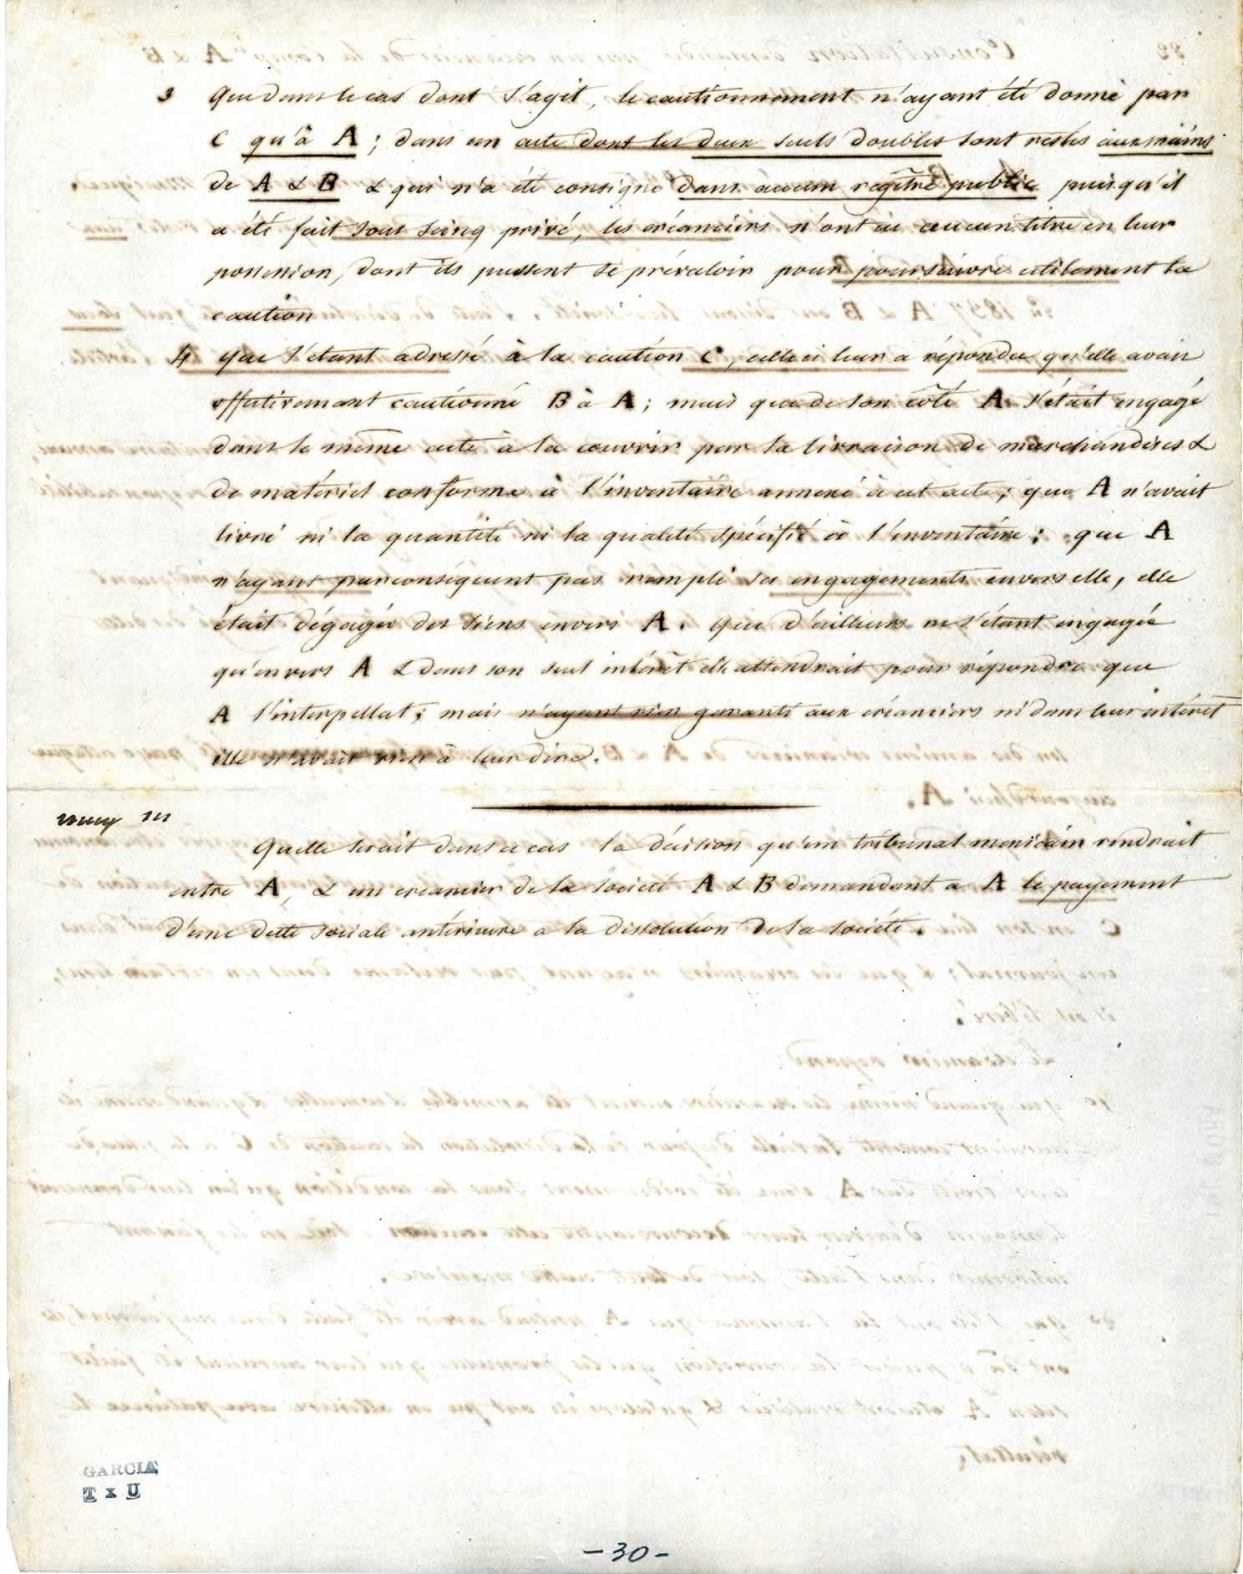 3 Que dans le cas dont s'agit, le cautionnement n'ayant été donné par
C qu'à A; dans un acte dont les deux seuls doubles sont restés aux mains
de A & B & qui n'a été consigné dans aucun registre public puisqu'il
a été fait sous seing privé, les créanciers n'ont eu aucun titre en leur
possession, dont ils pussent se prévaloir pour poursuivre utilement la
caution
4 que s'étant adressé à la caution C, celle ci leur a répondu qu'elle avait
effectivement cautionné B à A; mais que de son côté A s'était engagé
dans le même acte à la couvrir par la livraison de marchandises &
de matériel conforme à l'inventaire annexé à cet acte; que A n'avait
livré ni la quantité ni la qualité spécifié à l'inventaire; que A
n'ayant par conséquent pas rempli ses engagements envers elle, elle
était dégagée des siens envers A. Que d'ailleurs ne s'étant engagée
qu'envers A & dans son seul intérêt elle attendrait pour répondre que
A l'interpellat; mais n'ayant rien garanti aux créanciers ni dans leur intérêt
elle n'avait rien à leur dire.
Quelle serait dans ce cas la décision qu'un tribunal mexicain rendrait
entre A, & un créancier de la société A & B demandant a A le payement
d'une dette sociale antérieure a la dissolution de la société.
GARCIA
T x U
- 30 -